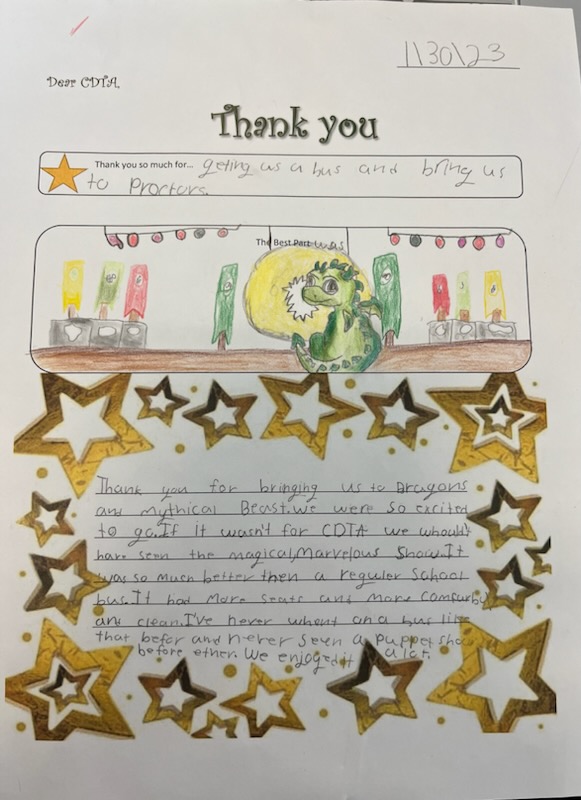 1\30\23
Dear CDTA,
Thank you
Thank you so much for... geting us a bus and bring us
to Proctors.
The Best Part was
Thank you for bringing us to Dragons
and Mythical Beast. We were so excited
to go. If it wasn't for CDTA we whould't
have seen the magical, Marvelous Show. It
was so much better then a reguler School
bus. It had More Seats and More Compurby
and clean. I've never whent on a bus like
that befor and never seen a puppet sho
before ether. We enjoyed it a lot.